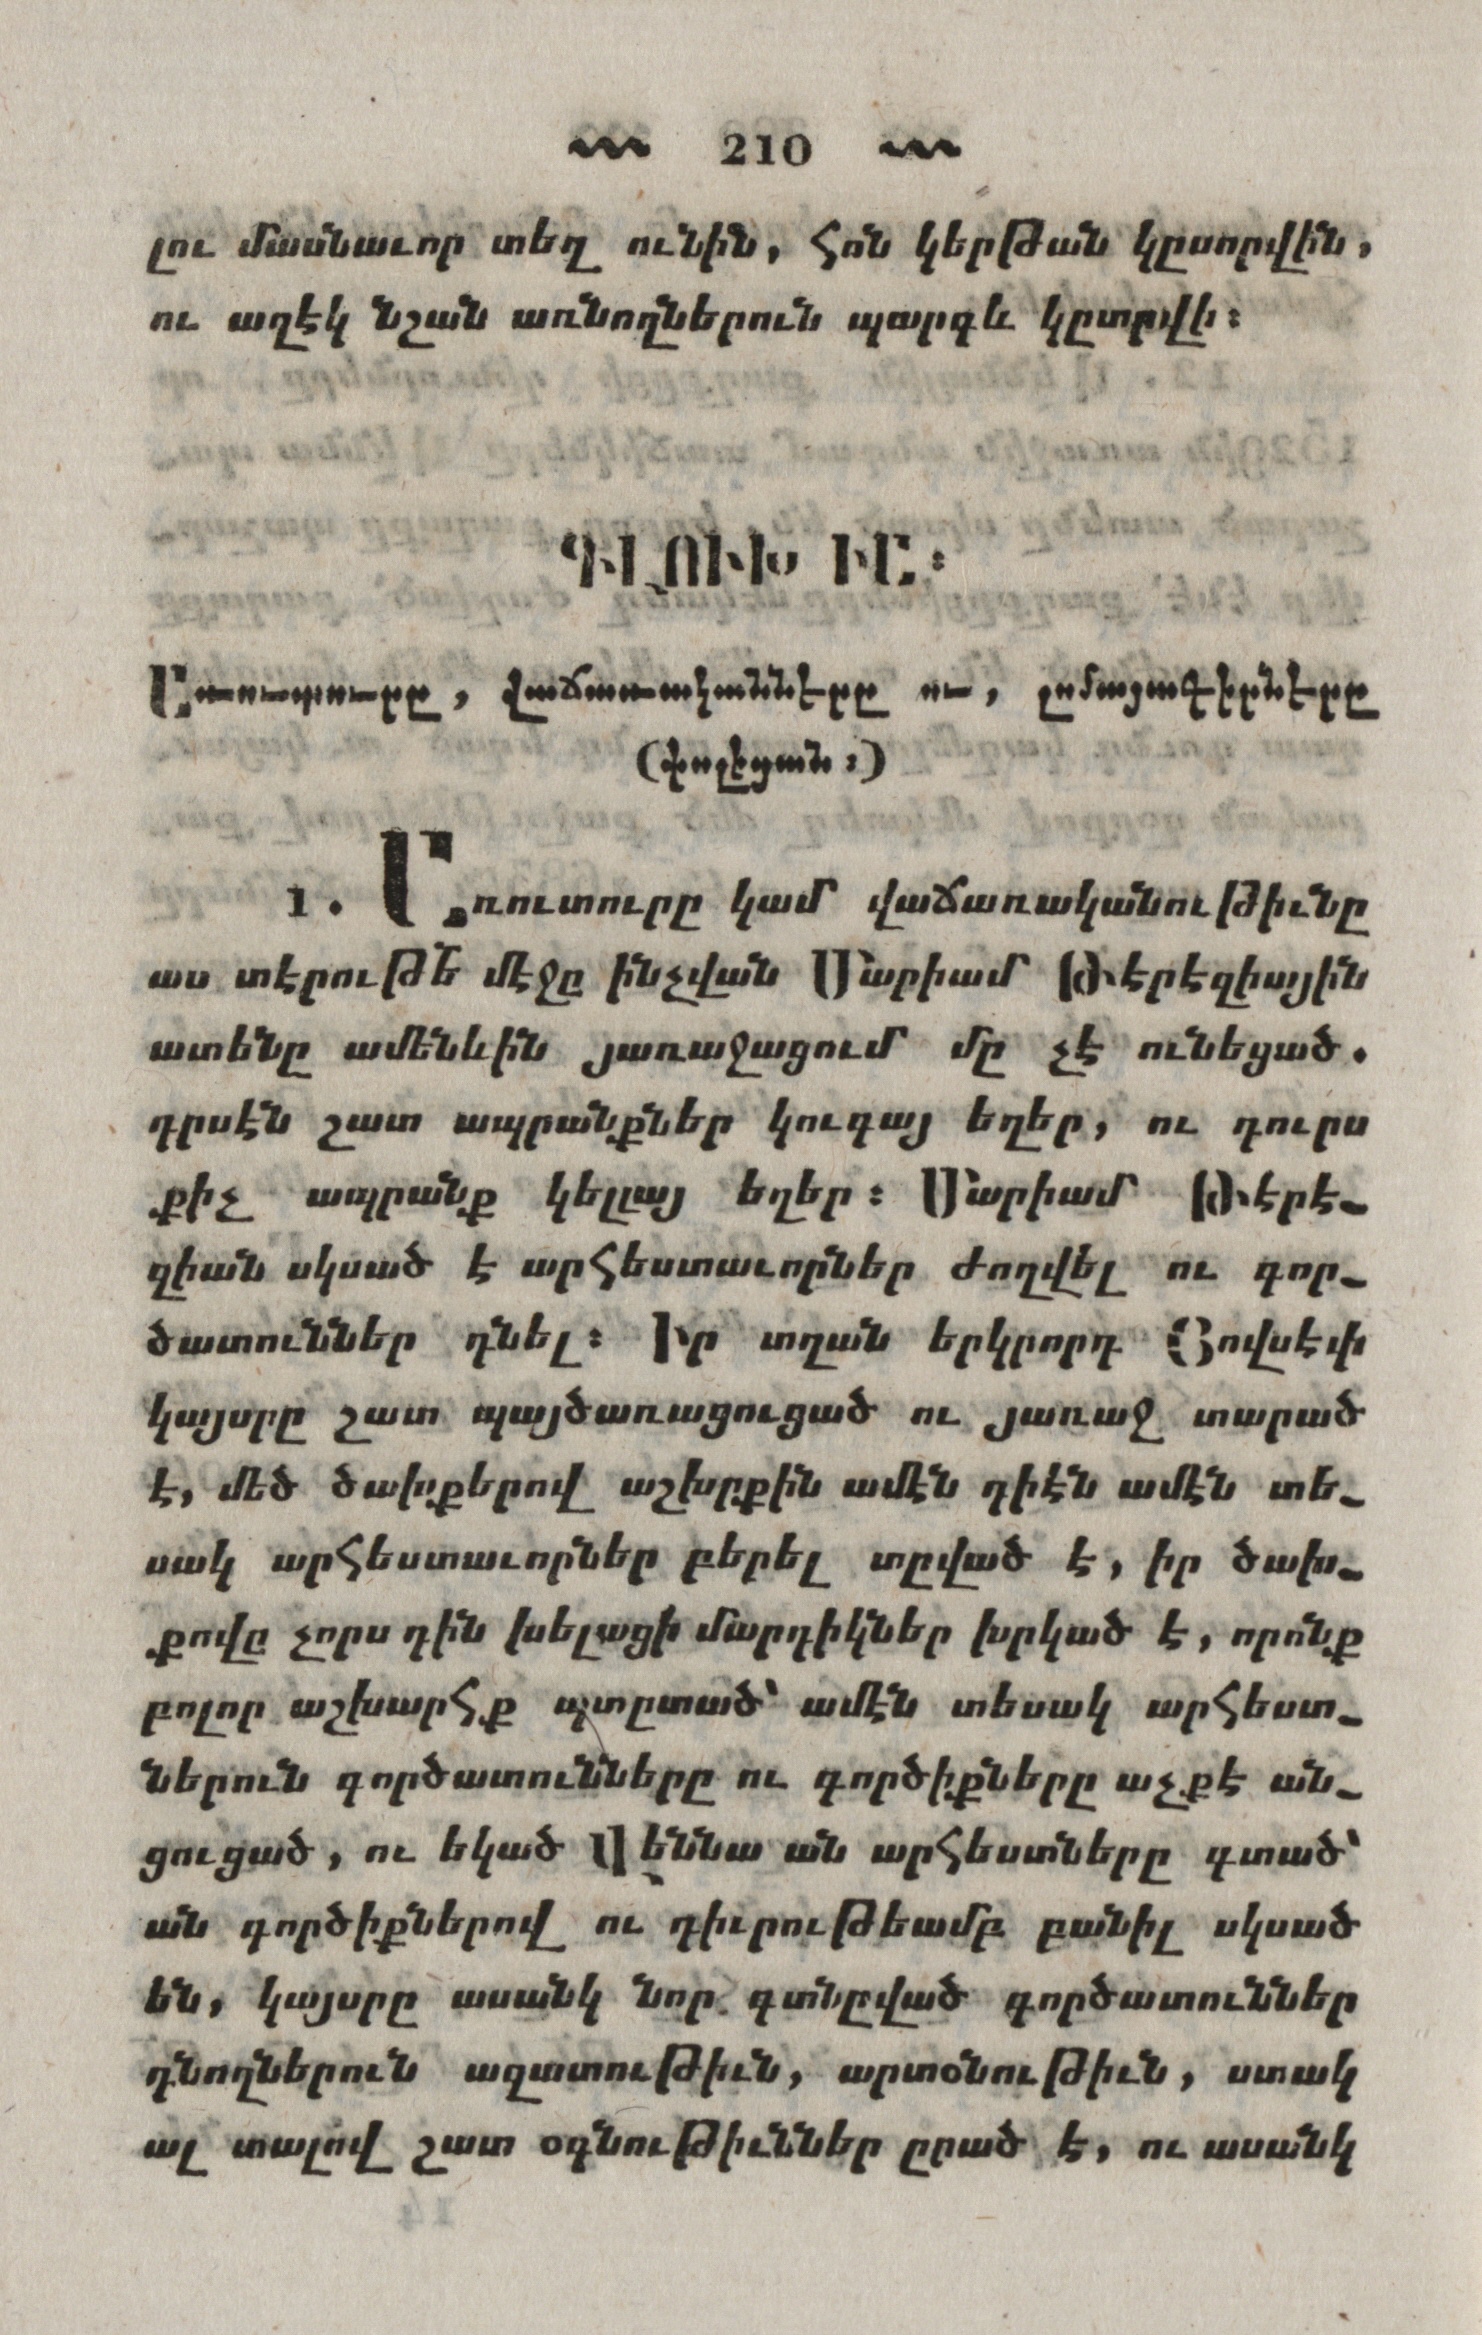 210
լու մասնաւոր տեղ ունին, հոն կերթան կըսորվին,
ու աղէկ նշան առնողներուն պարգև կըտրվի։
ԳԼՈՒԽ ԻԸ։
Առուտուրը, վաճառականները ու, ըմացագիրները
(փոլէցան։)
1. Առուտուրը կամ վաճառականութիւնը
աս տէրութե՟ մէջը ինչվան Մարիամ Թերէզիային
ատենը ամենևին յառաջացում մը չէ ունեցած.
դրսէն շատ ապրանքներ կուգայ եղեր, ու դուրս
քիչ ապրանք կելլայ եղեր։ Մարիամ Թէրէ֊
զիան սկսած է արհեստաւորներ ժողվել ու գոր֊
ծատուններ դնել։ Իր տղան երկրորդ Յովսէփ
կայսրը շատ պայծառացուցած ու յառաջ տարած
է, մեծ ծախքերով աշխըրքին ամէն դիէն ամէն տե֊
սակ արհեստաւորներ բերել տըված է, իր ծախ֊
քովը չորս դին խելացի մարդիկներ խրկած է, որոնք
բոլոր աշխարհք պտըտած՝ ամէն տեսակ արհեստ֊
ներուն գործատունները ու գործիքները աչքէ ան֊
ցուցած, ու եկած Վէննա ան արհեստները գտած՝
ան գործիքներով ու դիւրութեամբ բանիլ սկսած
են, կայսրը ասանկ նոր գտնըված գործատուններ
դնողներուն ազատութիւն, արտօնութիւն, ստակ
ալ տալով շատ օգնութիւններ ըրած է, ու ասանկ